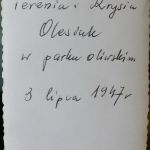 Terenia i Krysia
Olesiak
w parku oliwskim
3 lipca 1947r